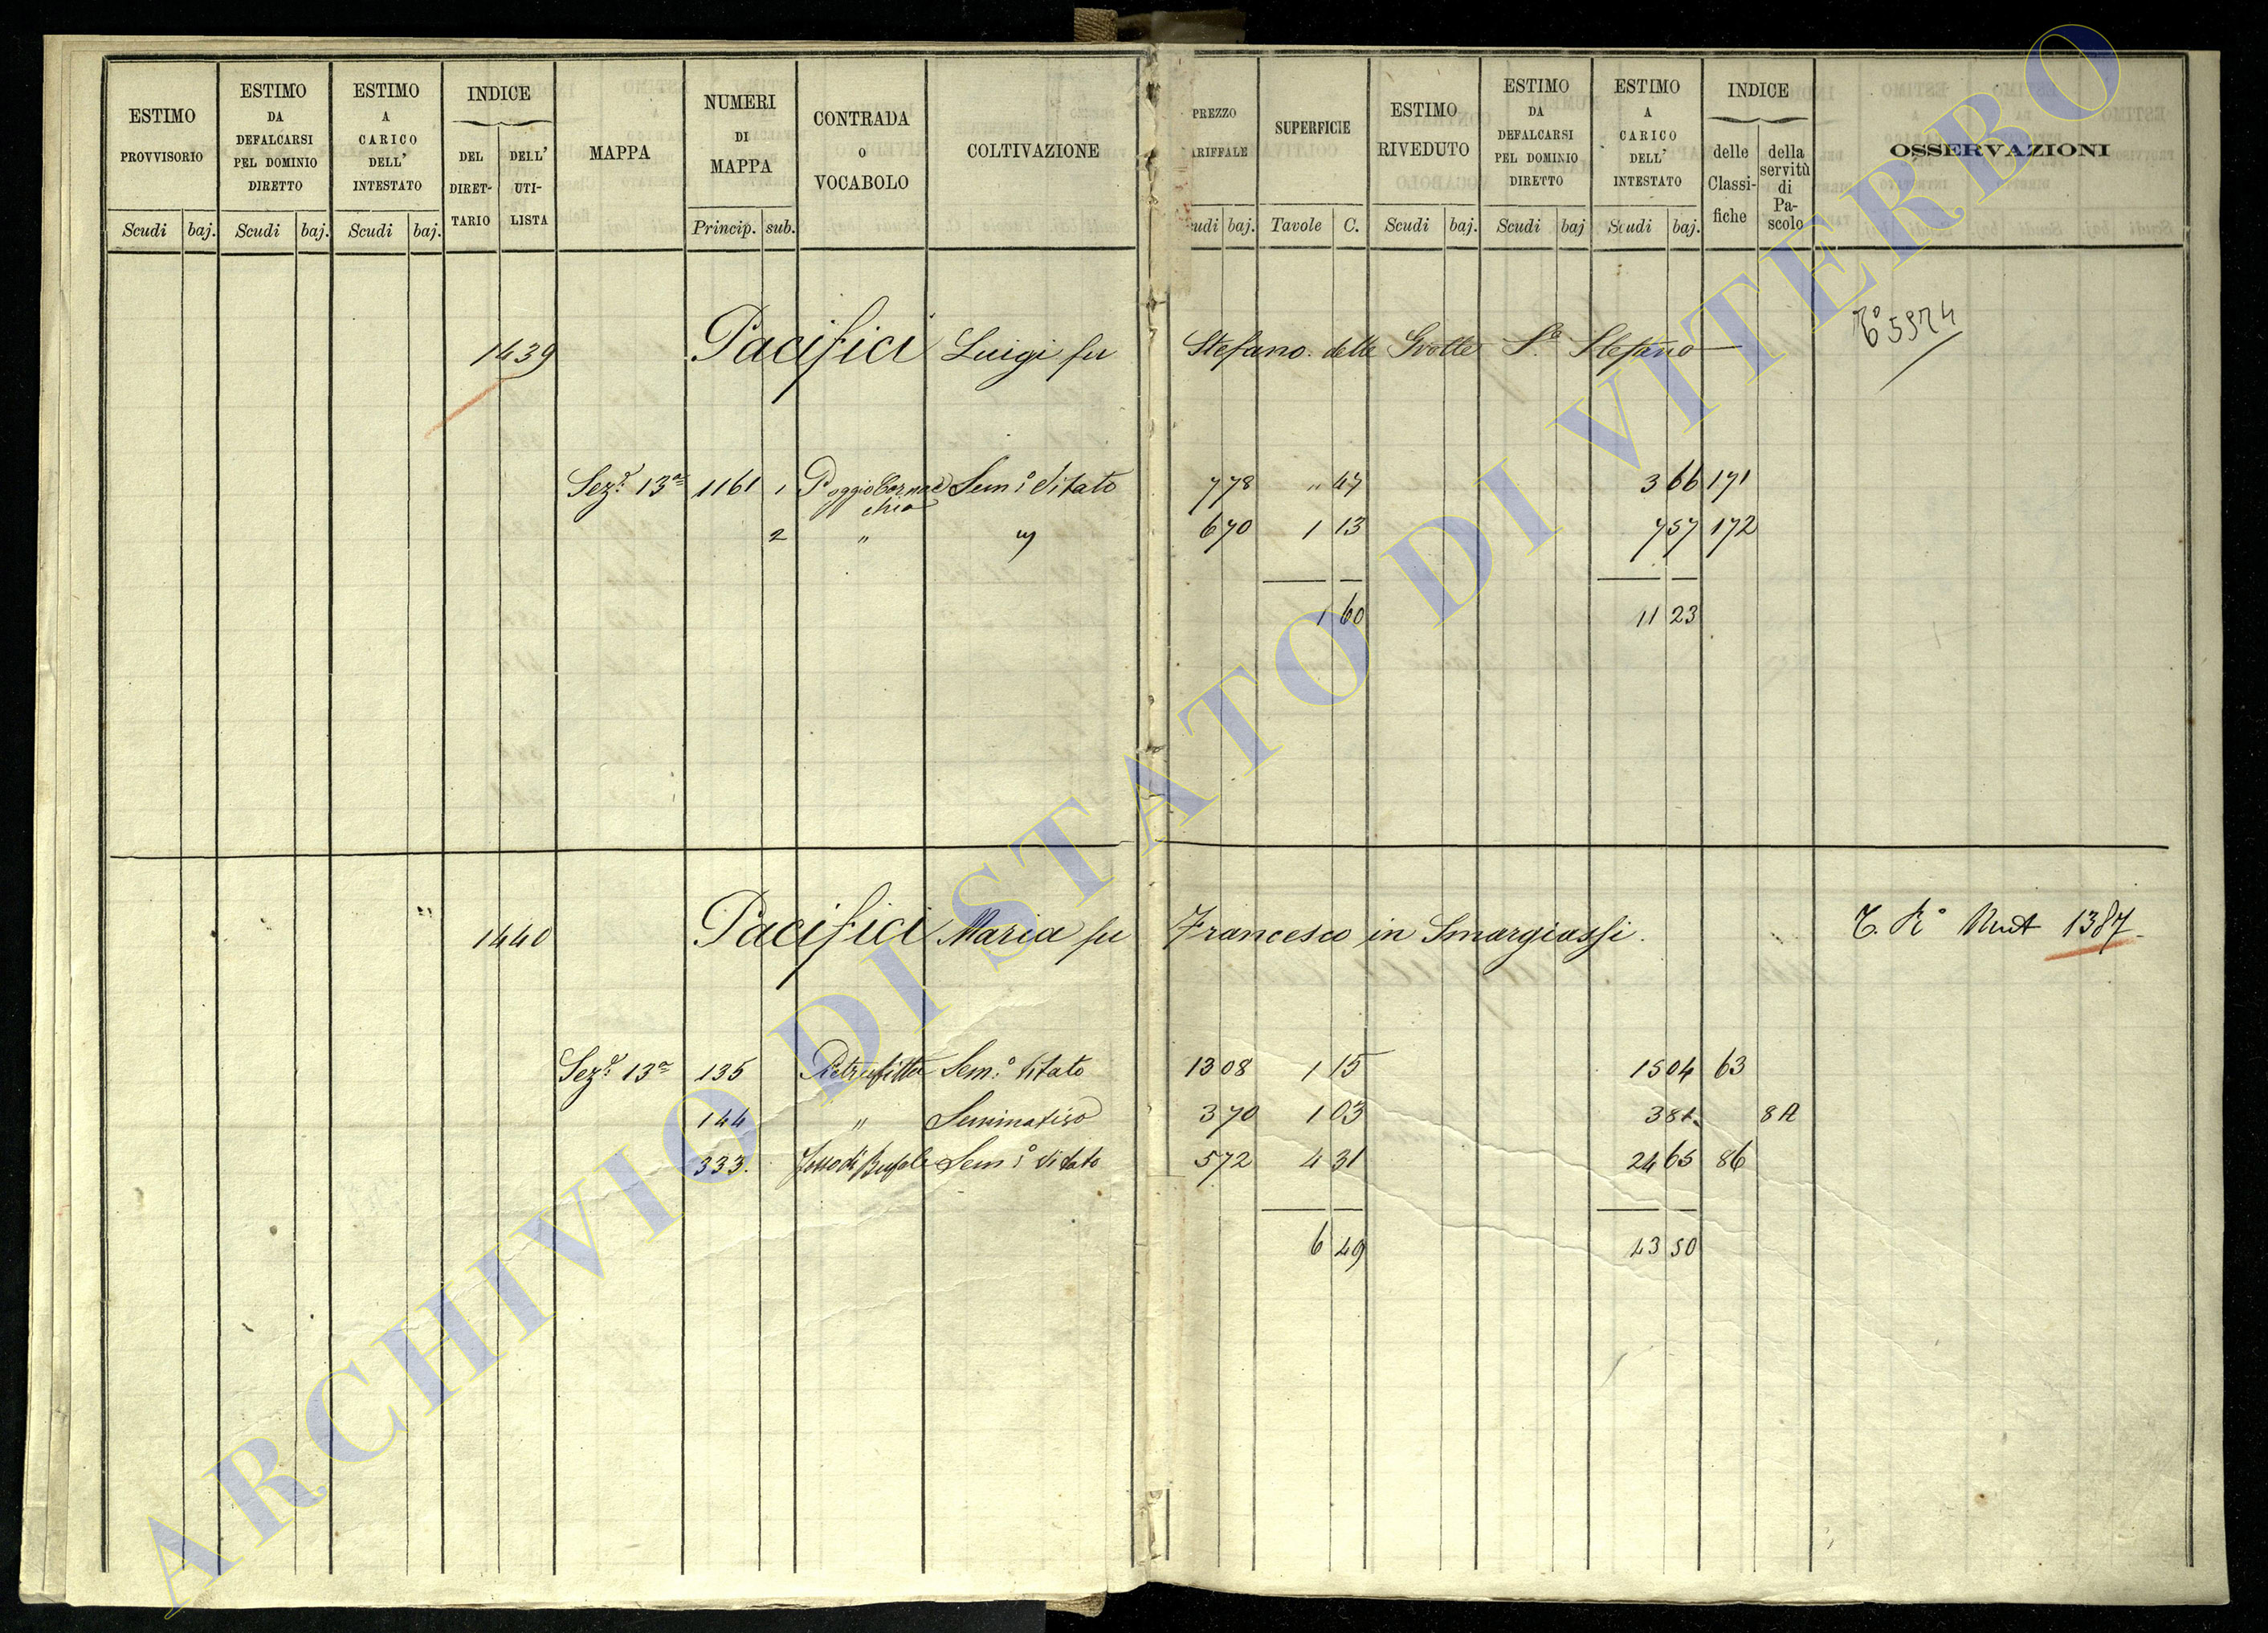 ESTIMO PROVVISORIO
ESTIMO DA DEFALCARSI PEL DOMINIO DIRETTO
ESTIMO A CARICO DELL' INTESTATO
INDICE
DEL DIRET-TARIO
DELL' UTI-LISTA
MAPPA
NUMERI DI MAPPA
CONTRADA O VOCABOLO
COLTIVAZIONE
PREZZO ARIFFALE
SUPERFICIE
ESTIMO RIVEDUTO
ESTIMO DA DEFALCARSI PEL DOMINIO DIRETTO
ESTIMO A CARICO DELL' INTESTATO
INDICE
delle Classi-fiche
della servitù di Pa-scolo
OSSERVAZIONI
Scudi baj. Scudi baj. Scudi baj. Princip. sub. udi baj. Tavole C. Scudi baj. Scudi baj Scudi baj.
1439 Pacifici Luigi fu Stefano delle Grotte S.o Stefano 5974
Sez.e 13a 1161 1 Poggio Cornac Sem.o Vitato 7 78 " 47 3 66 171
chia
2 " " 6 70 1 13 7 57 172
1 60 11 23
1440 Pacifici Maria fu Francesco in Smargiassi. T. R.o 1387
Sez.e 13a 135 Pietrafitta Sem.o Vitato 13 08 1 15 15 04 63
144 " Seminativo 3 70 1 03 3 81 8 A
333. Fosso di Bufale Sem.o Vitato 5 72 4 31 24 65 86
6 49 43 50
ARCHIVIO DI STATO DI VITERBO